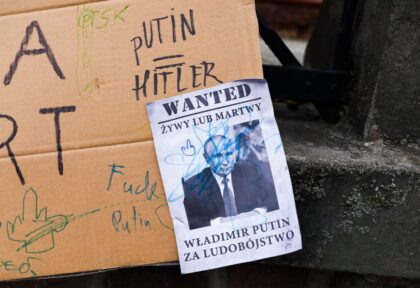 PSK
A
PUTIN
=
HITLER
RT
Fuck
Putin
WANTED
ŻYWY LUB MARTWY
WŁADIMIR PUTIN
ZA LUDOBÓJSTWO